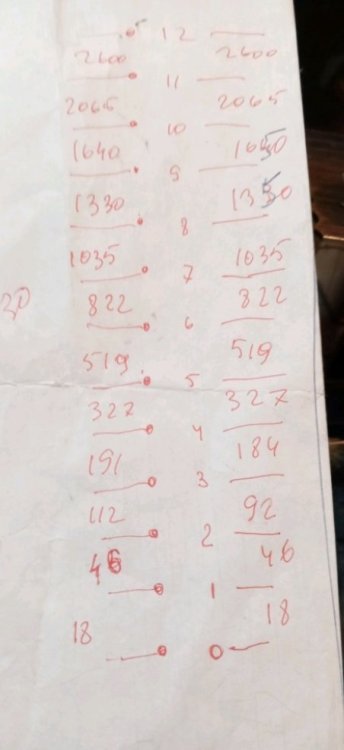 12
2600 2600
11
2065 2065
10
1640 1650
9
1330 1350
8
1035 1035
7
822 822
6
519 519
5
327 327
4
191 184
3
112 92
2
46 46
1
18 18
0